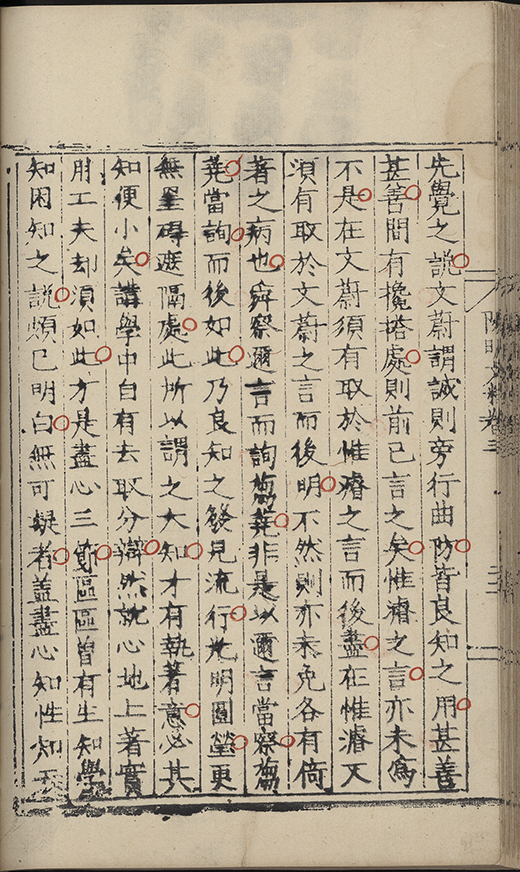 先覺之說文蔚謂誠則旁行曲防皆良知之用甚善
甚善間有攙搭處則前已言之矣惟濬之言亦未為
不是在文蔚須有取於惟濬之言而後盡在惟濬又
須有取於文蔚之言而後明不然則亦未免各有倚
著之病也舜察邇言而詢蒭蕘非是以邇言當察蒭
蕘當詢而後如此乃良知之發見流行光明圓瑩更
無罣碍遮隔處此所以謂之大知才有執著意必其
知便小矣講學中自有去取分辯然就心地上著實
用工夫却須如此才是盡心三節區區曾有生知學
知困知之說頗已明白無可疑者盖盡心知性知天
陽明文粹卷三